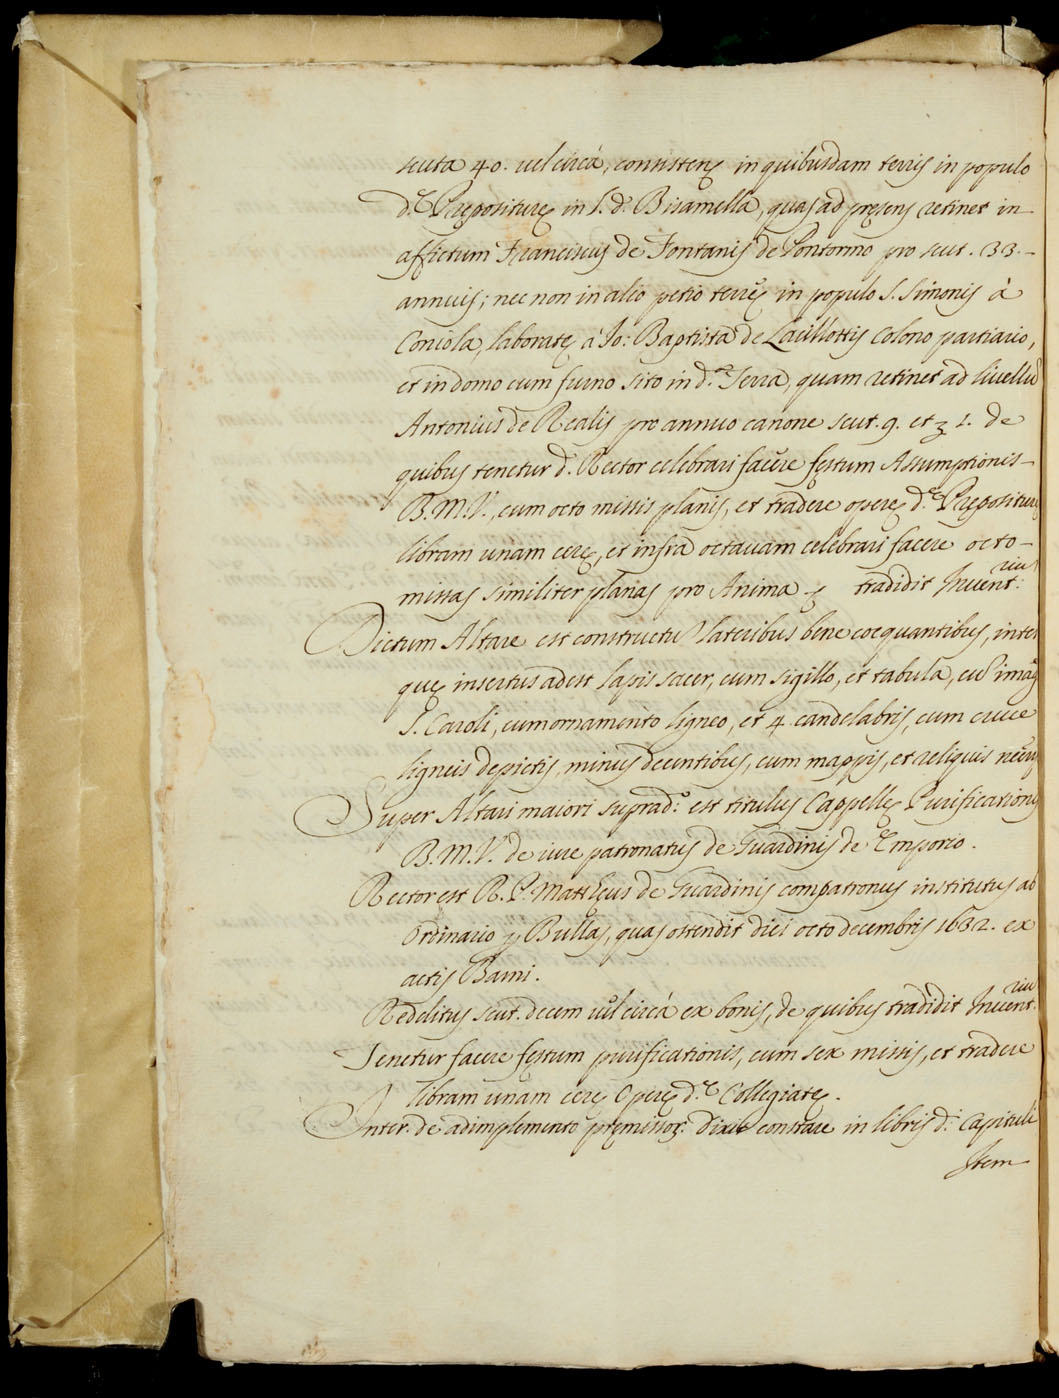 scuta 40. uel circà, consistenę in quibusdam terris in populo
d.ę Pręposituręin l.d. Bisamella, quas ad pręsens retinet in
affictum Franciscus de Fontanis de Pontormo pro scut. 33.
annuis; nec non in alio petio terrę in populo S. Simonis à
Coniola, laboratę à Jo: Baptista de Laiullottis Colono partiario,
et in domo cum furno sito in d.ª Terra, quam retinet ad liuellũ
Antonius de Realis pro annuo canone scut. 9. et ʒ 1. de
quibus tenetur d. Rector celebrari facere festum Assumptionis
B.M.V., cum octo missis planis, et tradere operę d.ę Prępositurę
libram unam cerę, et infra octauam celebrari facere octo
missas similiter planas pro Anima tradidit Inuent:riũ
Dictum Altare est constructũ lateribus bene coequantibus, inter
quę insertus adest lapis sacer, cum sigillo, et tabula, cũ imag.
S. Caroli, cum ornamento ligneo, et 4 candelabris, cum cruce
ligneis depictis, minus decentibus, cum mappis, et reliquis
Super Altari maiori suprad.º est titulus Cappellę Purificationis
B.M.V. de iure patronatus de Guardinis de Emporio.
Rector est R.P. Matthęus de Guardinis compatronus institutus ab
Ordinario p Bullas, quas ostendit diei octo decembris 1632. ex
actis Bami.
Redditus scut. decem uel circà ex bonis, de quibus tradidit Inuent.riũ
Tenetur facere festum purificationis, cum sex missis, et tradere
libram unam cerę Operę d.ę Collegiatę.
Inter. de adimplemento pręmissor. dixit constare in libris d.i Capituli
Item